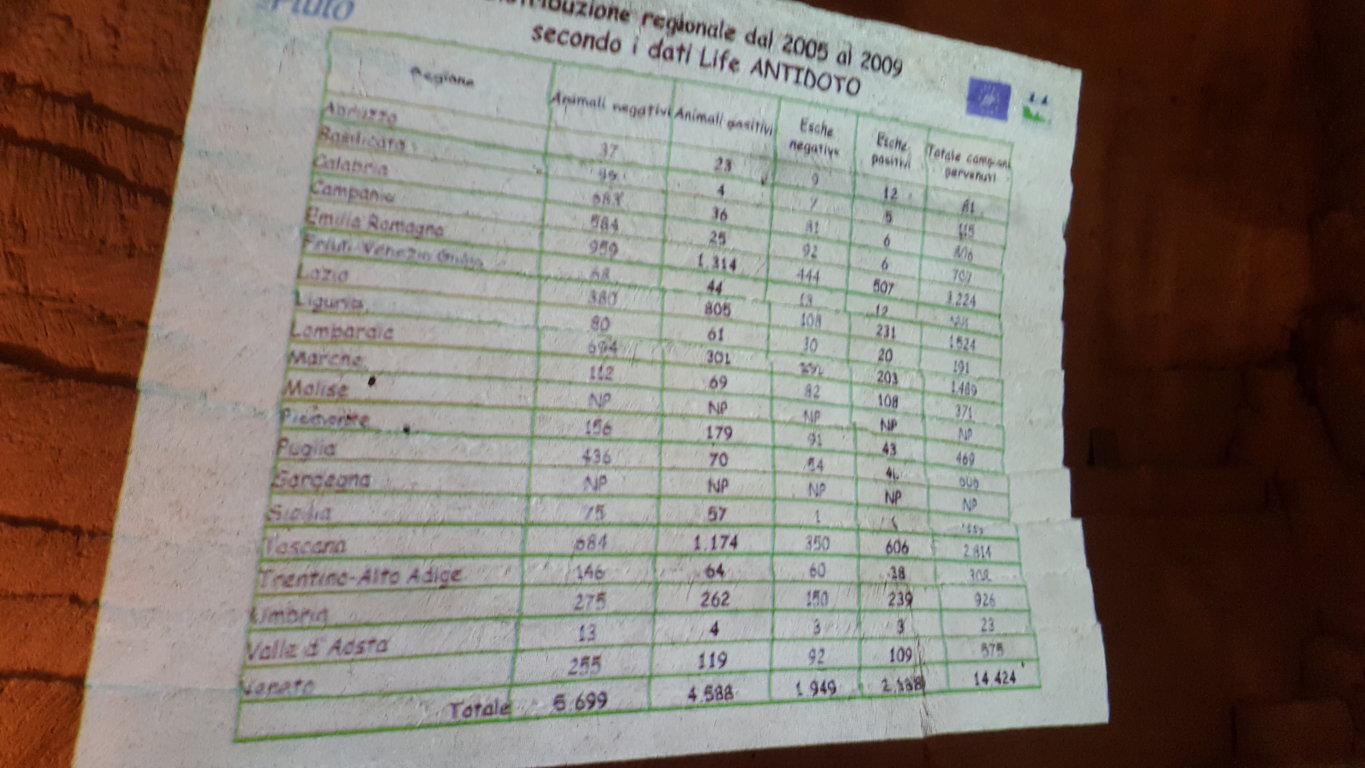 Pluto
regionale dal 2005 al 2009
secondo i dati Life ANTIDOTO
Regione Animali negativi Animali positivi Esche negative Esche positivi Totale campioni pervenuti
Abruzzo 37 23 9 12 81
Basilicata 4 7 5
Calabria 36 81 6
Campania 584 25 92 6 707
Emilia Romagna 959 1.314 444 507 3.224
Friuli-Venezia Giulia 44 12
Lazio 380 805 108 231 1524
Liguria 80 61 30 20 191
Lombardia 694 301 203 1.489
Marche 112 69 82 108 371
Molise NP NP NP NP NP
Piemonte 156 179 91 43 469
Puglia 436 70 54
Sardegna NP NP NP NP NP
Sicilia 75 57 1
Toscana 684 1.174 350 606 2.814
Trentino-Alto Adige 146 64 60 38
Umbria 275 262 150 239 926
Valle d'Aosta 13 4 3 3 23
Veneto 255 119 92 109 575
Totale 5.699 4.588 1.949 14.424